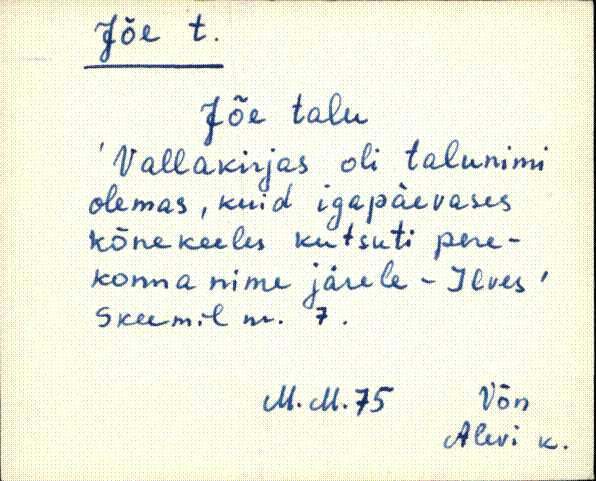 Jõe t.
Jõe talu
'Vallakirjas oli talunimi
olemas, kuid igapäevases
kõnekeeles kutsuti pere-
konna nime järele - Ilves'
Skeemil nr. 7.
M.M.75 Võn
Alevi k.